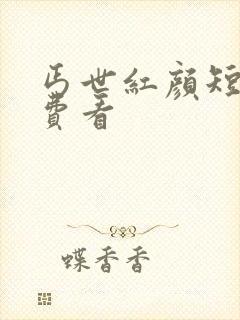 丐世紅顏短
費看
蝶香香